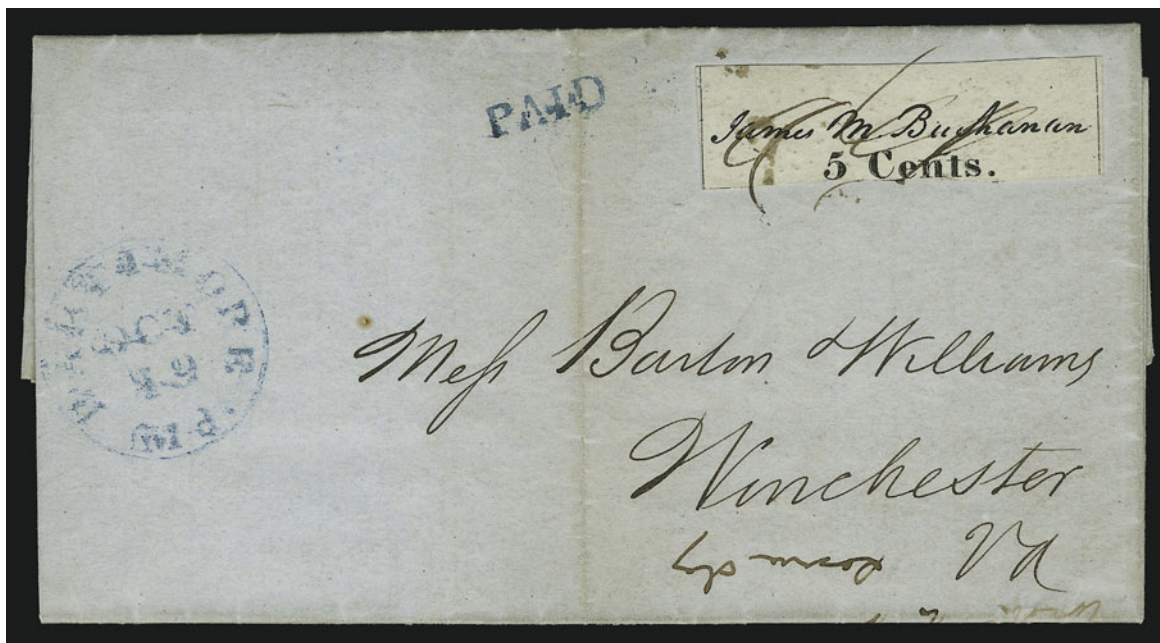 PAID
James M. Buchanan
5 Cents.
BALTIMORE Md.
OCT
19
Mess Barton & Williams
Winchester
Va